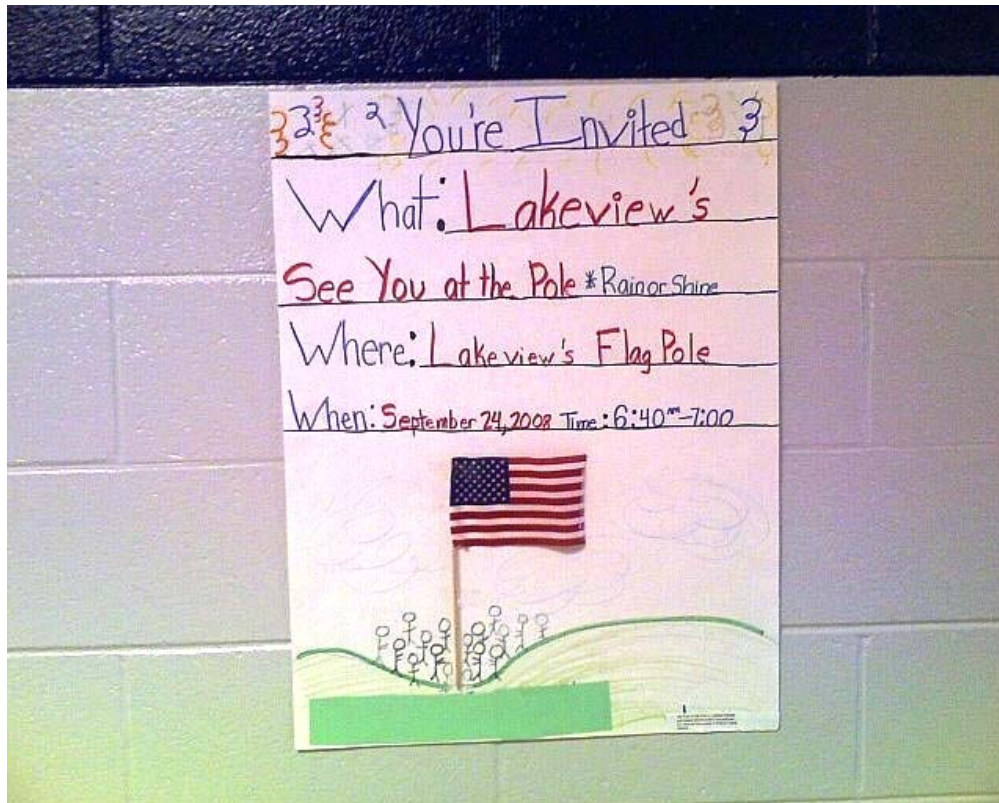 You're Invited
What: Lakeview's
See You at the Pole *Rain or Shine
Where: Lakeview's Flag Pole
When: September 24, 2008 Time: 6:40am-7:00